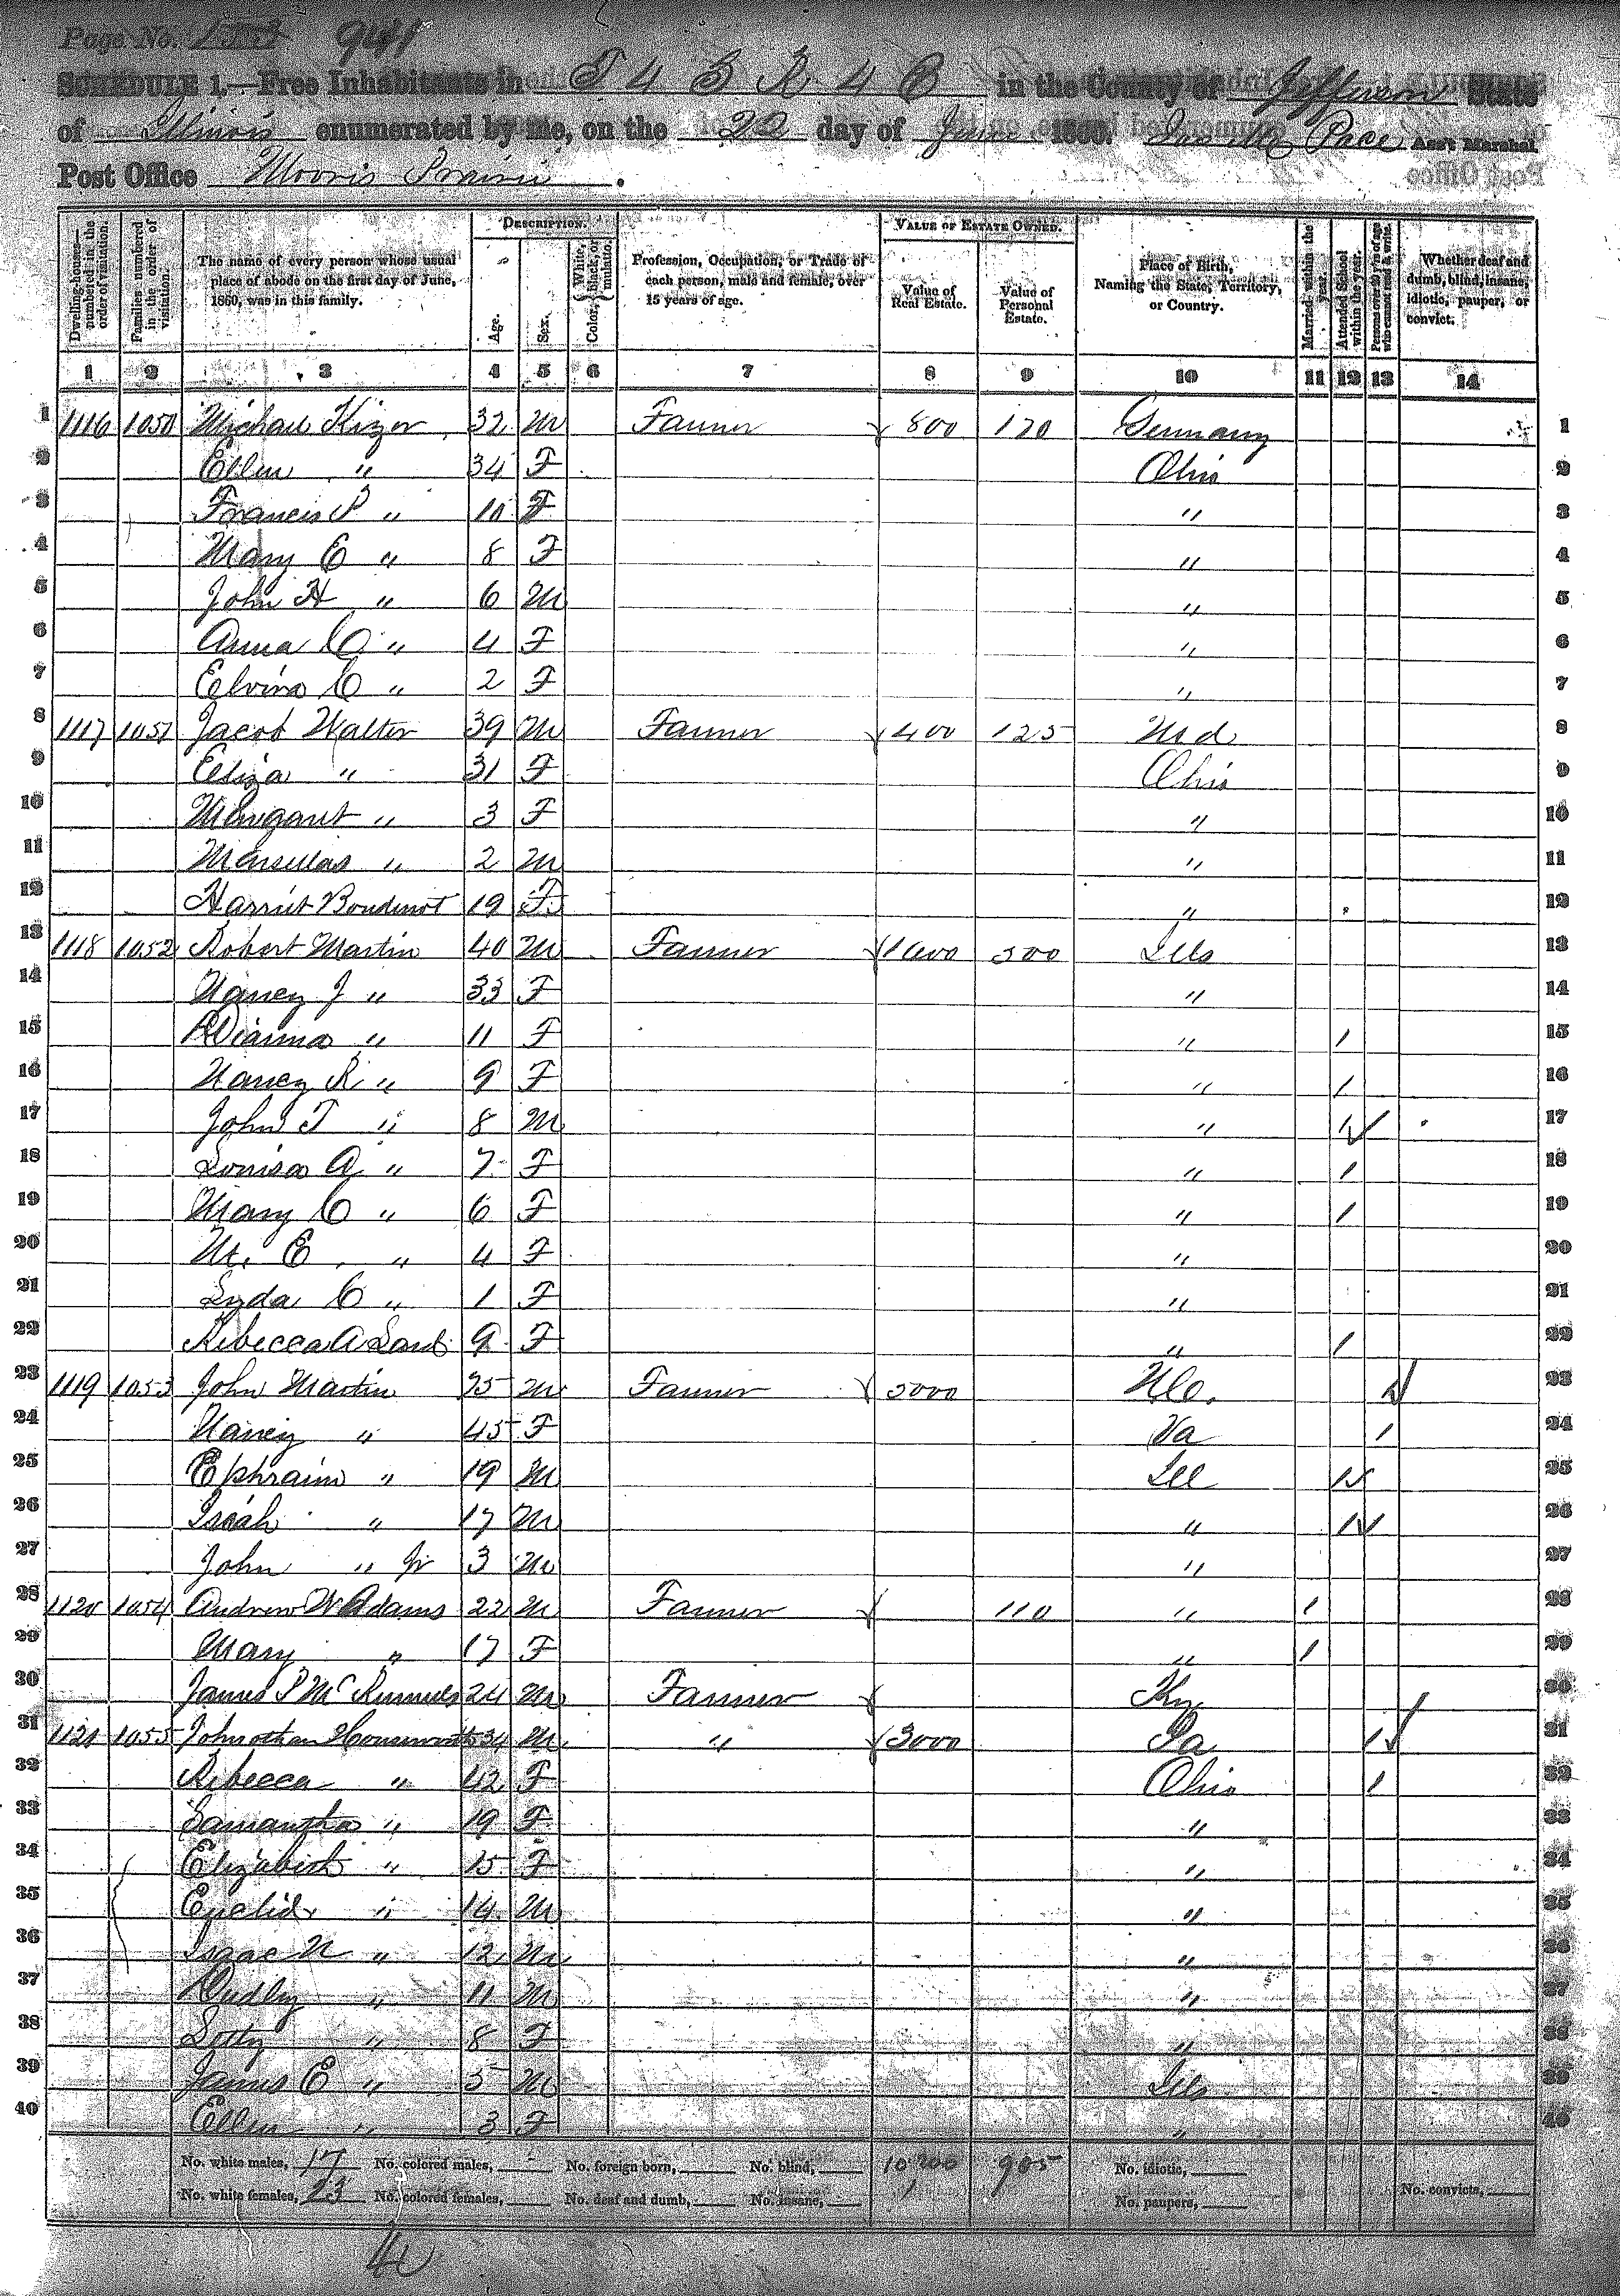 Page No. 941
SCHEDULE 1.—Free Inhabitants in T 4 S R 4 E in the County of Jefferson State
of Illinois enumerated by me, on the 22 day of June 1860. Jno M Pace Ass't Marshal.
Post Office Moores Prairie.
Dwelling-houses—numbered in the order of visitation.
Families numbered in the order of visitation.
The name of every person whose usual place of abode on the first day of June, 1860, was in this family.
DESCRIPTION.
Age.
Sex.
Color, { White, black, or mulatto.
Profession, Occupation, or Trade of each person, male and female, over 15 years of age.
VALUE OF ESTATE OWNED.
Value of Real Estate.
Value of Personal Estate.
Place of Birth, Naming the State, Territory, or Country.
Married within the year.
Attended School within the year.
Persons over 20 y'rs of age who cannot read & write.
Whether deaf and dumb, blind, insane, idiotic, pauper, or convict.
1 2 3 4 5 6 7 8 9 10 11 12 13 14
1 1116 1050 Michael Kizer 32 M Farmer 800 120 Germany 1
2 Ellen " 34 F Ohio 2
3 Francis P " 10 F " 3
4 Mary E " 8 F " 4
5 John H " 6 M " 5
6 Anna C " 4 F " 6
7 Elvina C " 2 F " 7
8 1117 1051 Jacob Walter 39 M Farmer 400 125 Md 8
9 Eliza " 31 F Ohio 9
10 Margaret " 3 F " 10
11 Marsellas " 2 M " 11
12 Harriet Boudinot 19 F " 12
13 1118 1052 Robert Martin 40 M Farmer 1000 300 Ills 13
14 Nancy J " 33 F " 14
15 Dianna " 11 F " 1 15
16 Nancy R " 9 F " 1 16
17 John T " 8 M " 1 17
18 Louisa A " 7 F " 1 18
19 Mary C " 6 F " 1 19
20 M. E. " 4 F " 20
21 Lyda C " 1 F " 21
22 Rebecca A 9 F " 1 22
23 1119 1053 John Martin 75 M Farmer 5000 N C. 1 23
24 Nancy " 45 F Va 1 24
25 Ephraim " 19 M Ill 1 25
26 Isiah " 17 M " 1 26
27 John " Jr 3 M " 27
28 1120 1054 Andrew W Adams 22 M Farmer 110 " 1 28
29 Mary " 17 F " 1 29
30 James P 24 M Farmer Ky 30
31 1121 1055 Johnothan Housworth 34 M " 3000 Pa 1 31
32 Rebecca " 42 F Ohio 1 32
33 Samantha " 19 F " 33
34 Elizabeth " 15 F " 34
35 Euclid " 14 M " 35
36 Isaac N " 12 M " 36
37 Dudley " 11 M " 37
38 Letty " 8 F " 38
39 James E " 5 M Ills 39
40 Ellen " 3 F " 40
No. white males, 17 No. colored males, No. foreign born, No. blind, 10 200 905 No. idiotic,
No. white females, 23 No. colored females, No. deaf and dumb, No. insane, No. paupers, No. convicts,